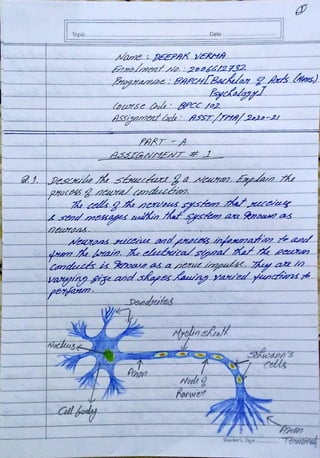 1
Topic Date
Name : DEEPAK VERMA
Enrolment No. : 2006612732
Programme : BAPCH [Bachelor of Arts (Hons.)
Psychology]
Course Code : BPCC 102
Assignment Code : ASST/TMA/2020-21
PART - A
ASSIGNMENT # 1
Q.1. Describe the structure of a neuron. Explain the
process of neural conduction.
The cells of the nervous system that receive
& send messages within that system are known as
neurons.
Neurons receive and process information to and
from the brain. The electrical signal that the neuron
conducts is known as a nerve impulse. They are in
varying size and shapes having varied functions to
perform.
Dendrites
Myelin sheath
Nucleus
Schwann's
Cells
Axon
Node of
Ranvier
Cell body
Axon
Terminals
Teacher's Sign